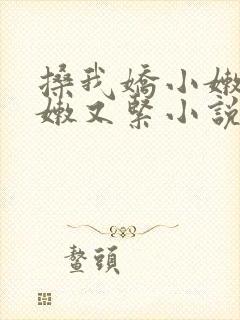 搡我嬌小嫩
嫩又緊小說
鰲頭